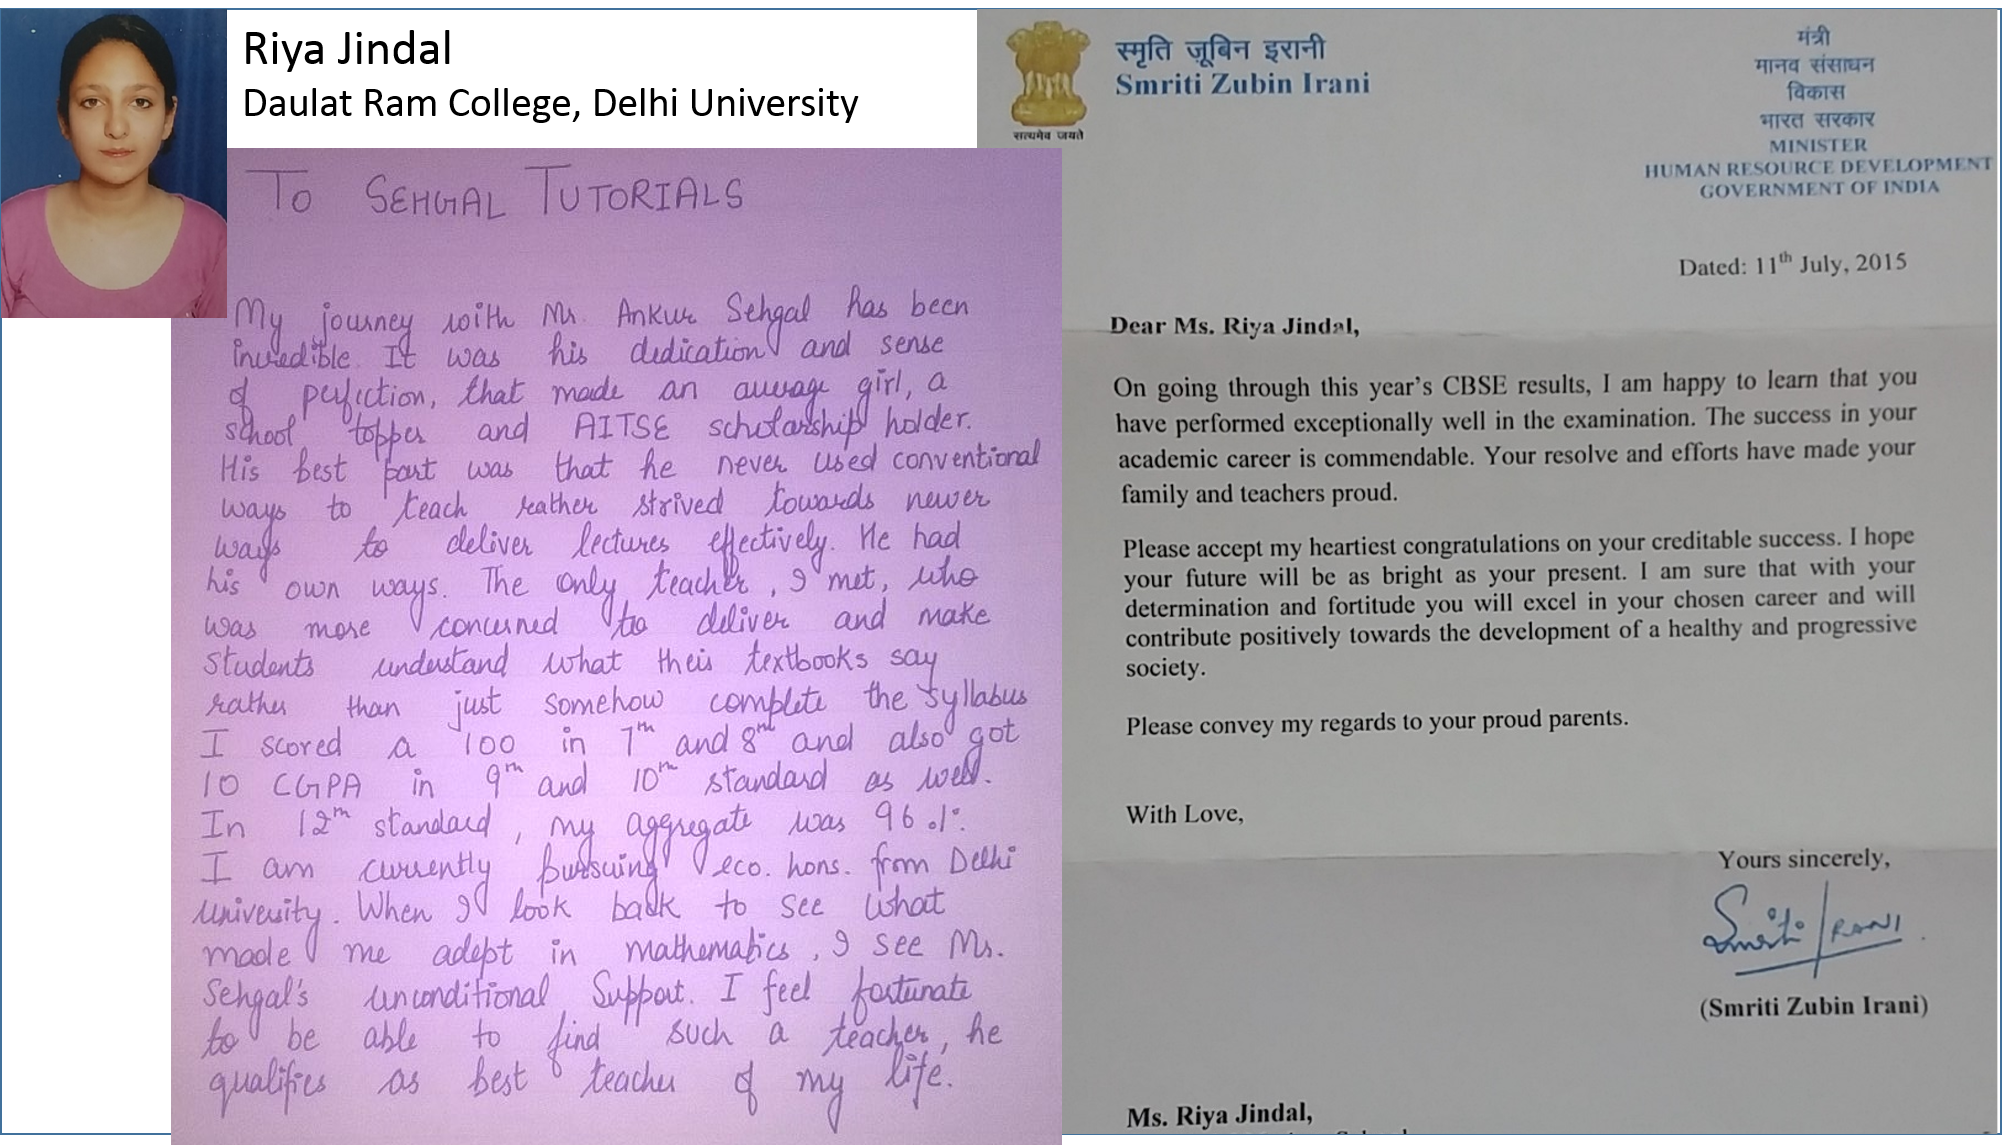 Riya Jindal
Daulat Ram College, Delhi University
TO SEHGAL TUTORIALS
My journey with Mr. Ankur Sehgal has been
incredible. It was his dedication and sense
of perfection, that made an average girl, a
school topper and AITSE scholarship holder.
His best part was that he never used conventional
ways to teach rather strived towards newer
ways to deliver lectures effectively. He had
his own ways. The only teacher, I met, who
was more concerned to deliver and make
students understand what their textbooks say
rather than just somehow complete the syllabus
I scored a 100 in 7th and 8th and also got
10 CGPA in 9th and 10th standard as well.
In 12th standard, my aggregate was 96%.
I am currently pursuing eco. hons. from Delhi
University. When I look back to see what
made me adept in mathematics, I see Mr.
Sehgal's unconditional support. I feel fortunate
to be able to find such a teacher, he
qualifies as best teacher of my life.
सत्यमेव जयते
स्मृति ज़ूबिन इरानी
Smriti Zubin Irani
मंत्री
मानव संसाधन
विकास
भारत सरकार
MINISTER
HUMAN RESOURCE DEVELOPMENT
GOVERNMENT OF INDIA
Dated: 11th July, 2015
Dear Ms. Riya Jindal,
On going through this year's CBSE results, I am happy to learn that you
have performed exceptionally well in the examination. The success in your
academic career is commendable. Your resolve and efforts have made your
family and teachers proud.
Please accept my heartiest congratulations on your creditable success. I hope
your future will be as bright as your present. I am sure that with your
determination and fortitude you will excel in your chosen career and will
contribute positively towards the development of a healthy and progressive
society.
Please convey my regards to your proud parents.
With Love,
Yours sincerely,
Smriti IRANI
(Smriti Zubin Irani)
Ms. Riya Jindal,